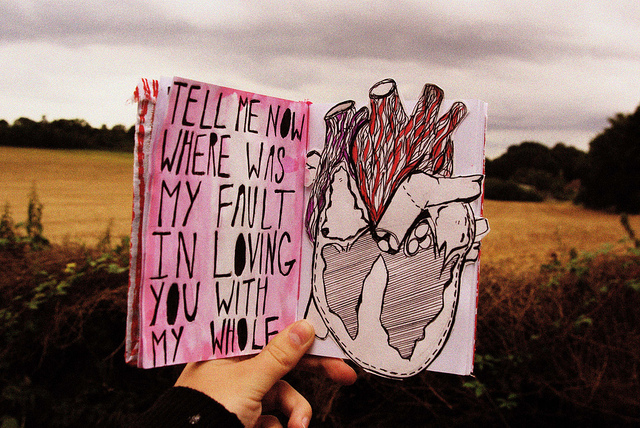 TELL ME NOW
WHERE WAS
MY FAULT
IN LOVING
YOU WITH
MY WHOLE